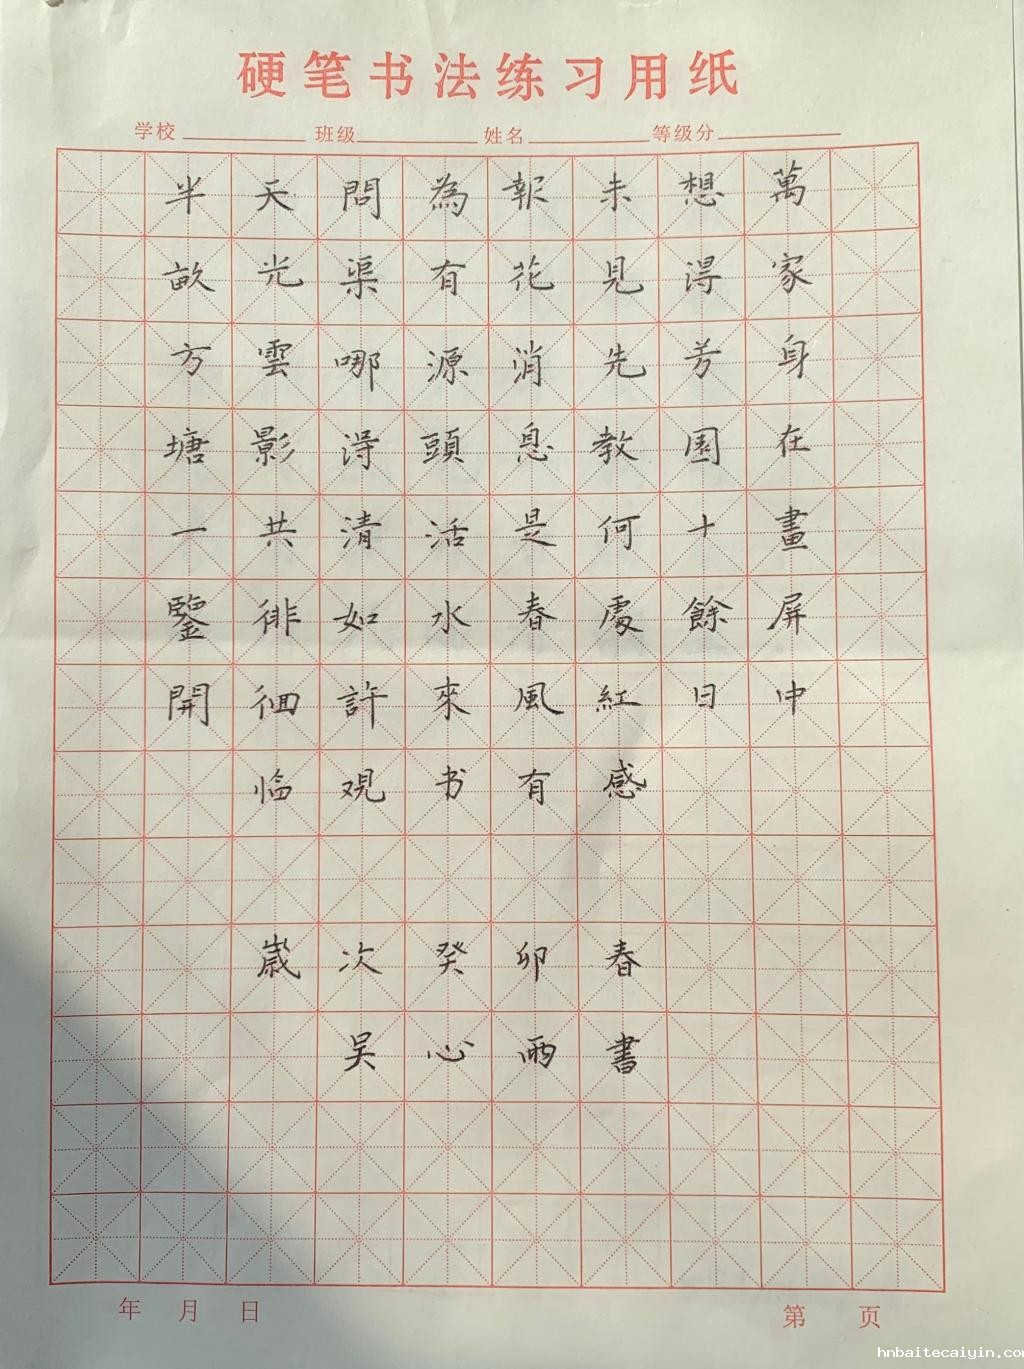 硬笔书法练习用纸
学校 班级 姓名 等级分
半畝方塘一鑒開
天光雲影共徘徊
問渠哪得清如許
為有源頭活水來
報花消息是春風
未見先教何處紅
想得芳園十餘日
萬家身在畫屏中
临观书有感
歲次癸卯春
吴心雨書
年 月 日
第 页
hnbaitecaiyin.com